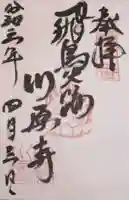 奉拝
飛鳥大佛
川原寺
令和三年
四月三日